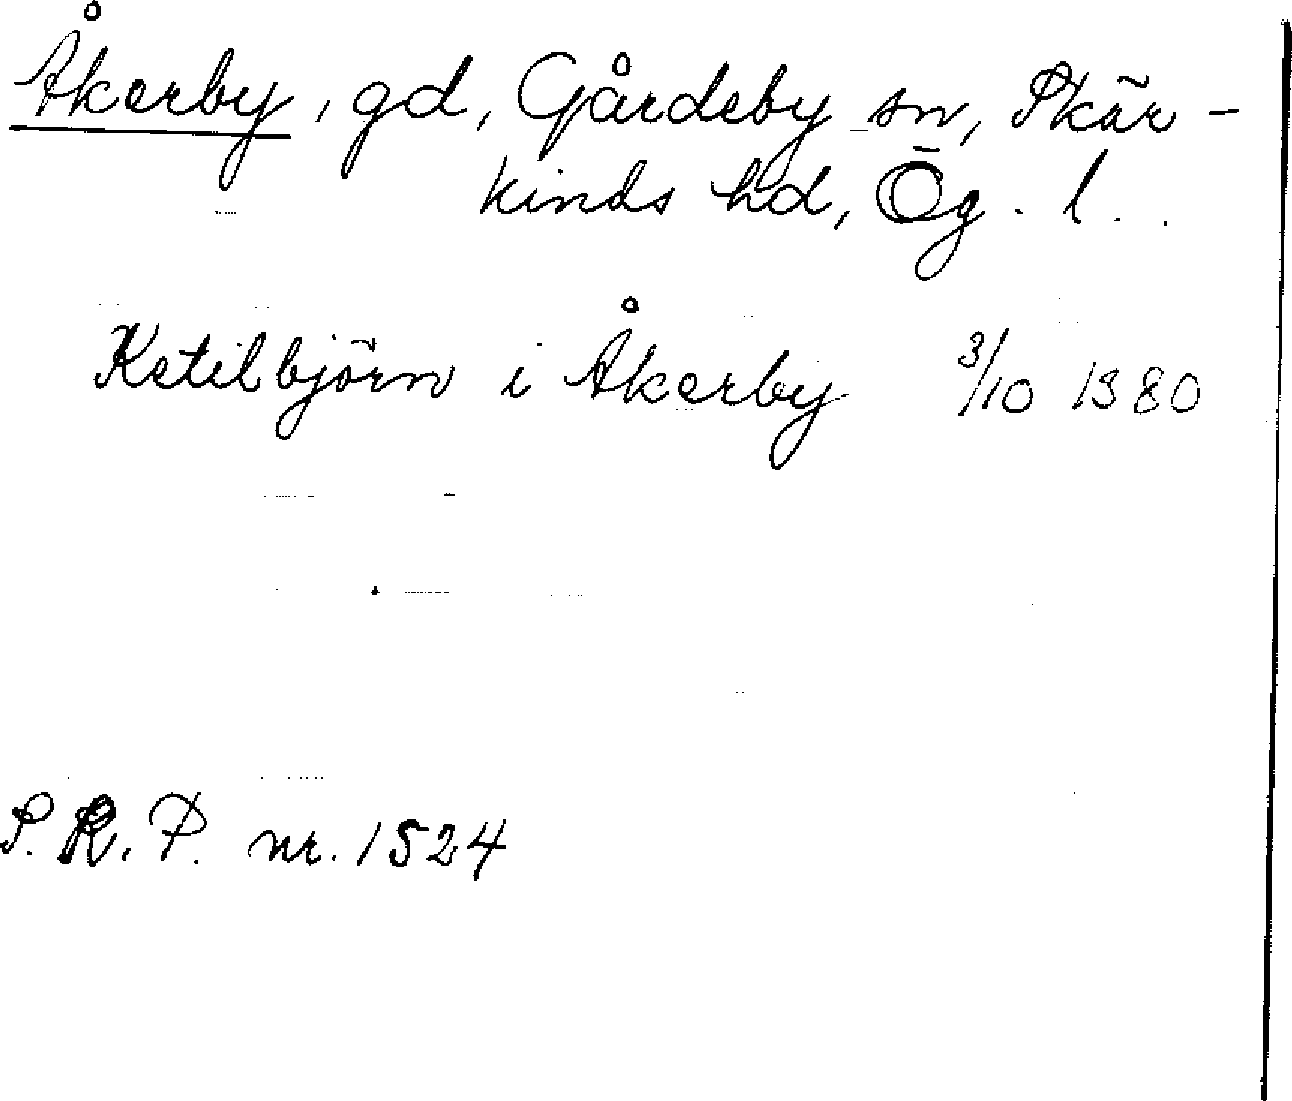 Åkerby, gd, Gårdeby sn, Skär-
kinds hd, Ög. l.
Ketilbjörn i Åkerby 3/10 1380
S. R. P. nr. 1524